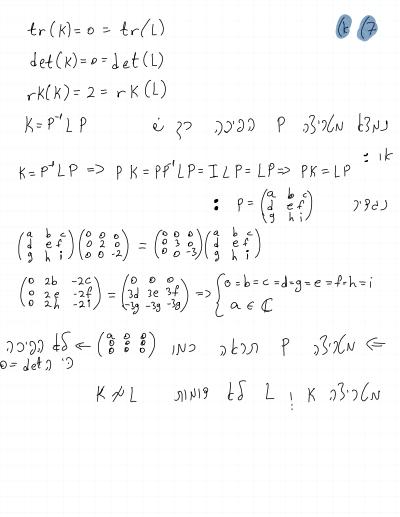 7) א)
tr(K)=0=tr(L)
det(K)=0=det(L)
rk(K)=2=rk(L)
נמצא מטריצה P הפיכה כך ש K=P⁻¹LP
אז: K=P⁻¹LP => PK=PP⁻¹LP=ILP=LP => PK=LP
נגדיר P=(a b c; d e f; g h i) :
(a b c; d e f; g h i)(0 0 0; 0 2 0; 0 0 -2)=(0 0 0; 0 3 0; 0 0 -3)(a b c; d e f; g h i)
(0 2b -2c; 0 2e -2f; 0 2h -2i)=(0 0 0; 3d 3e 3f; -3g -3g -3g) => {0=b=c=d=g=e=f=h=i a∈ℂ
<= מטריצה P תראה כמו (a 0 0; 0 0 0; 0 0 0) <= לא הפיכה
כי det=0
מטריצה K ו L לא דומות K≁L